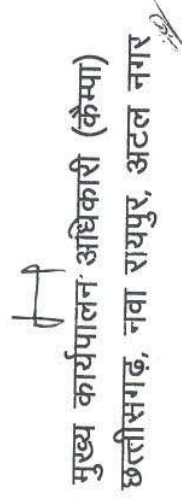 मुख्य कार्यपालन अधिकारी (कैम्पा)
छत्तीसगढ़, नवा रायपुर, अटल नगर